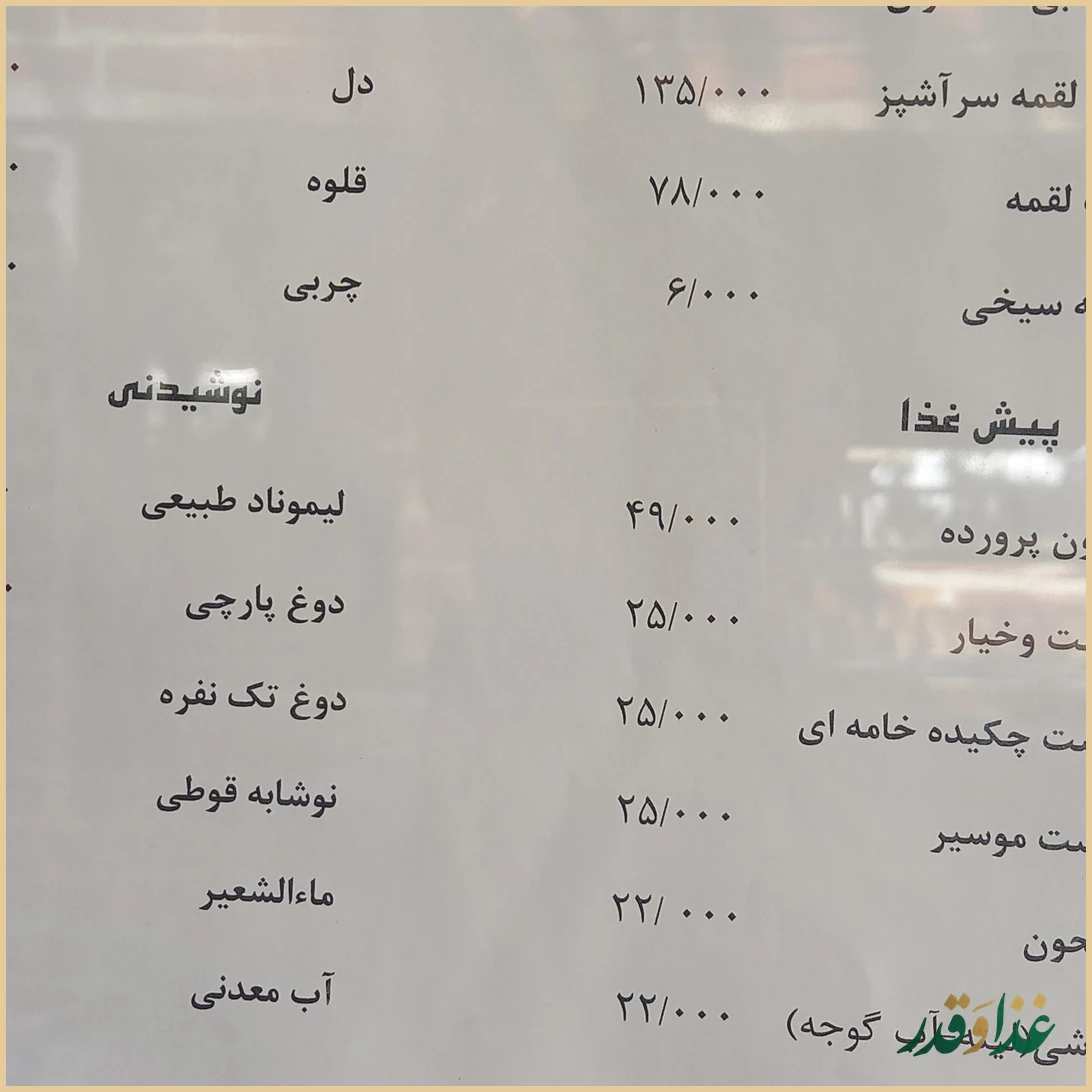 لقمه سرآشپز ۱۳۵/۰۰۰
لقمه ۷۸/۰۰۰
سیخی ۶/۰۰۰
پیش غذا
پرورده ۴۹/۰۰۰
وخیار ۲۵/۰۰۰
چکیده خامه ای ۲۵/۰۰۰
موسیر ۲۵/۰۰۰
۲۲/۰۰۰
گوجه) ۲۲/۰۰۰
دل
قلوه
چربی
نوشیدنی
لیموناد طبیعی
دوغ پارچی
دوغ تک نفره
نوشابه قوطی
ماءالشعیر
آب معدنی
غذا و قدر